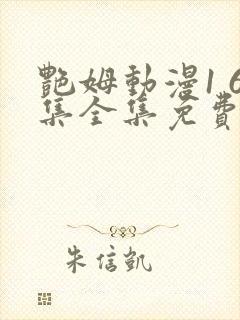 艷姆動漫1 6
集全集免費
朱信凱